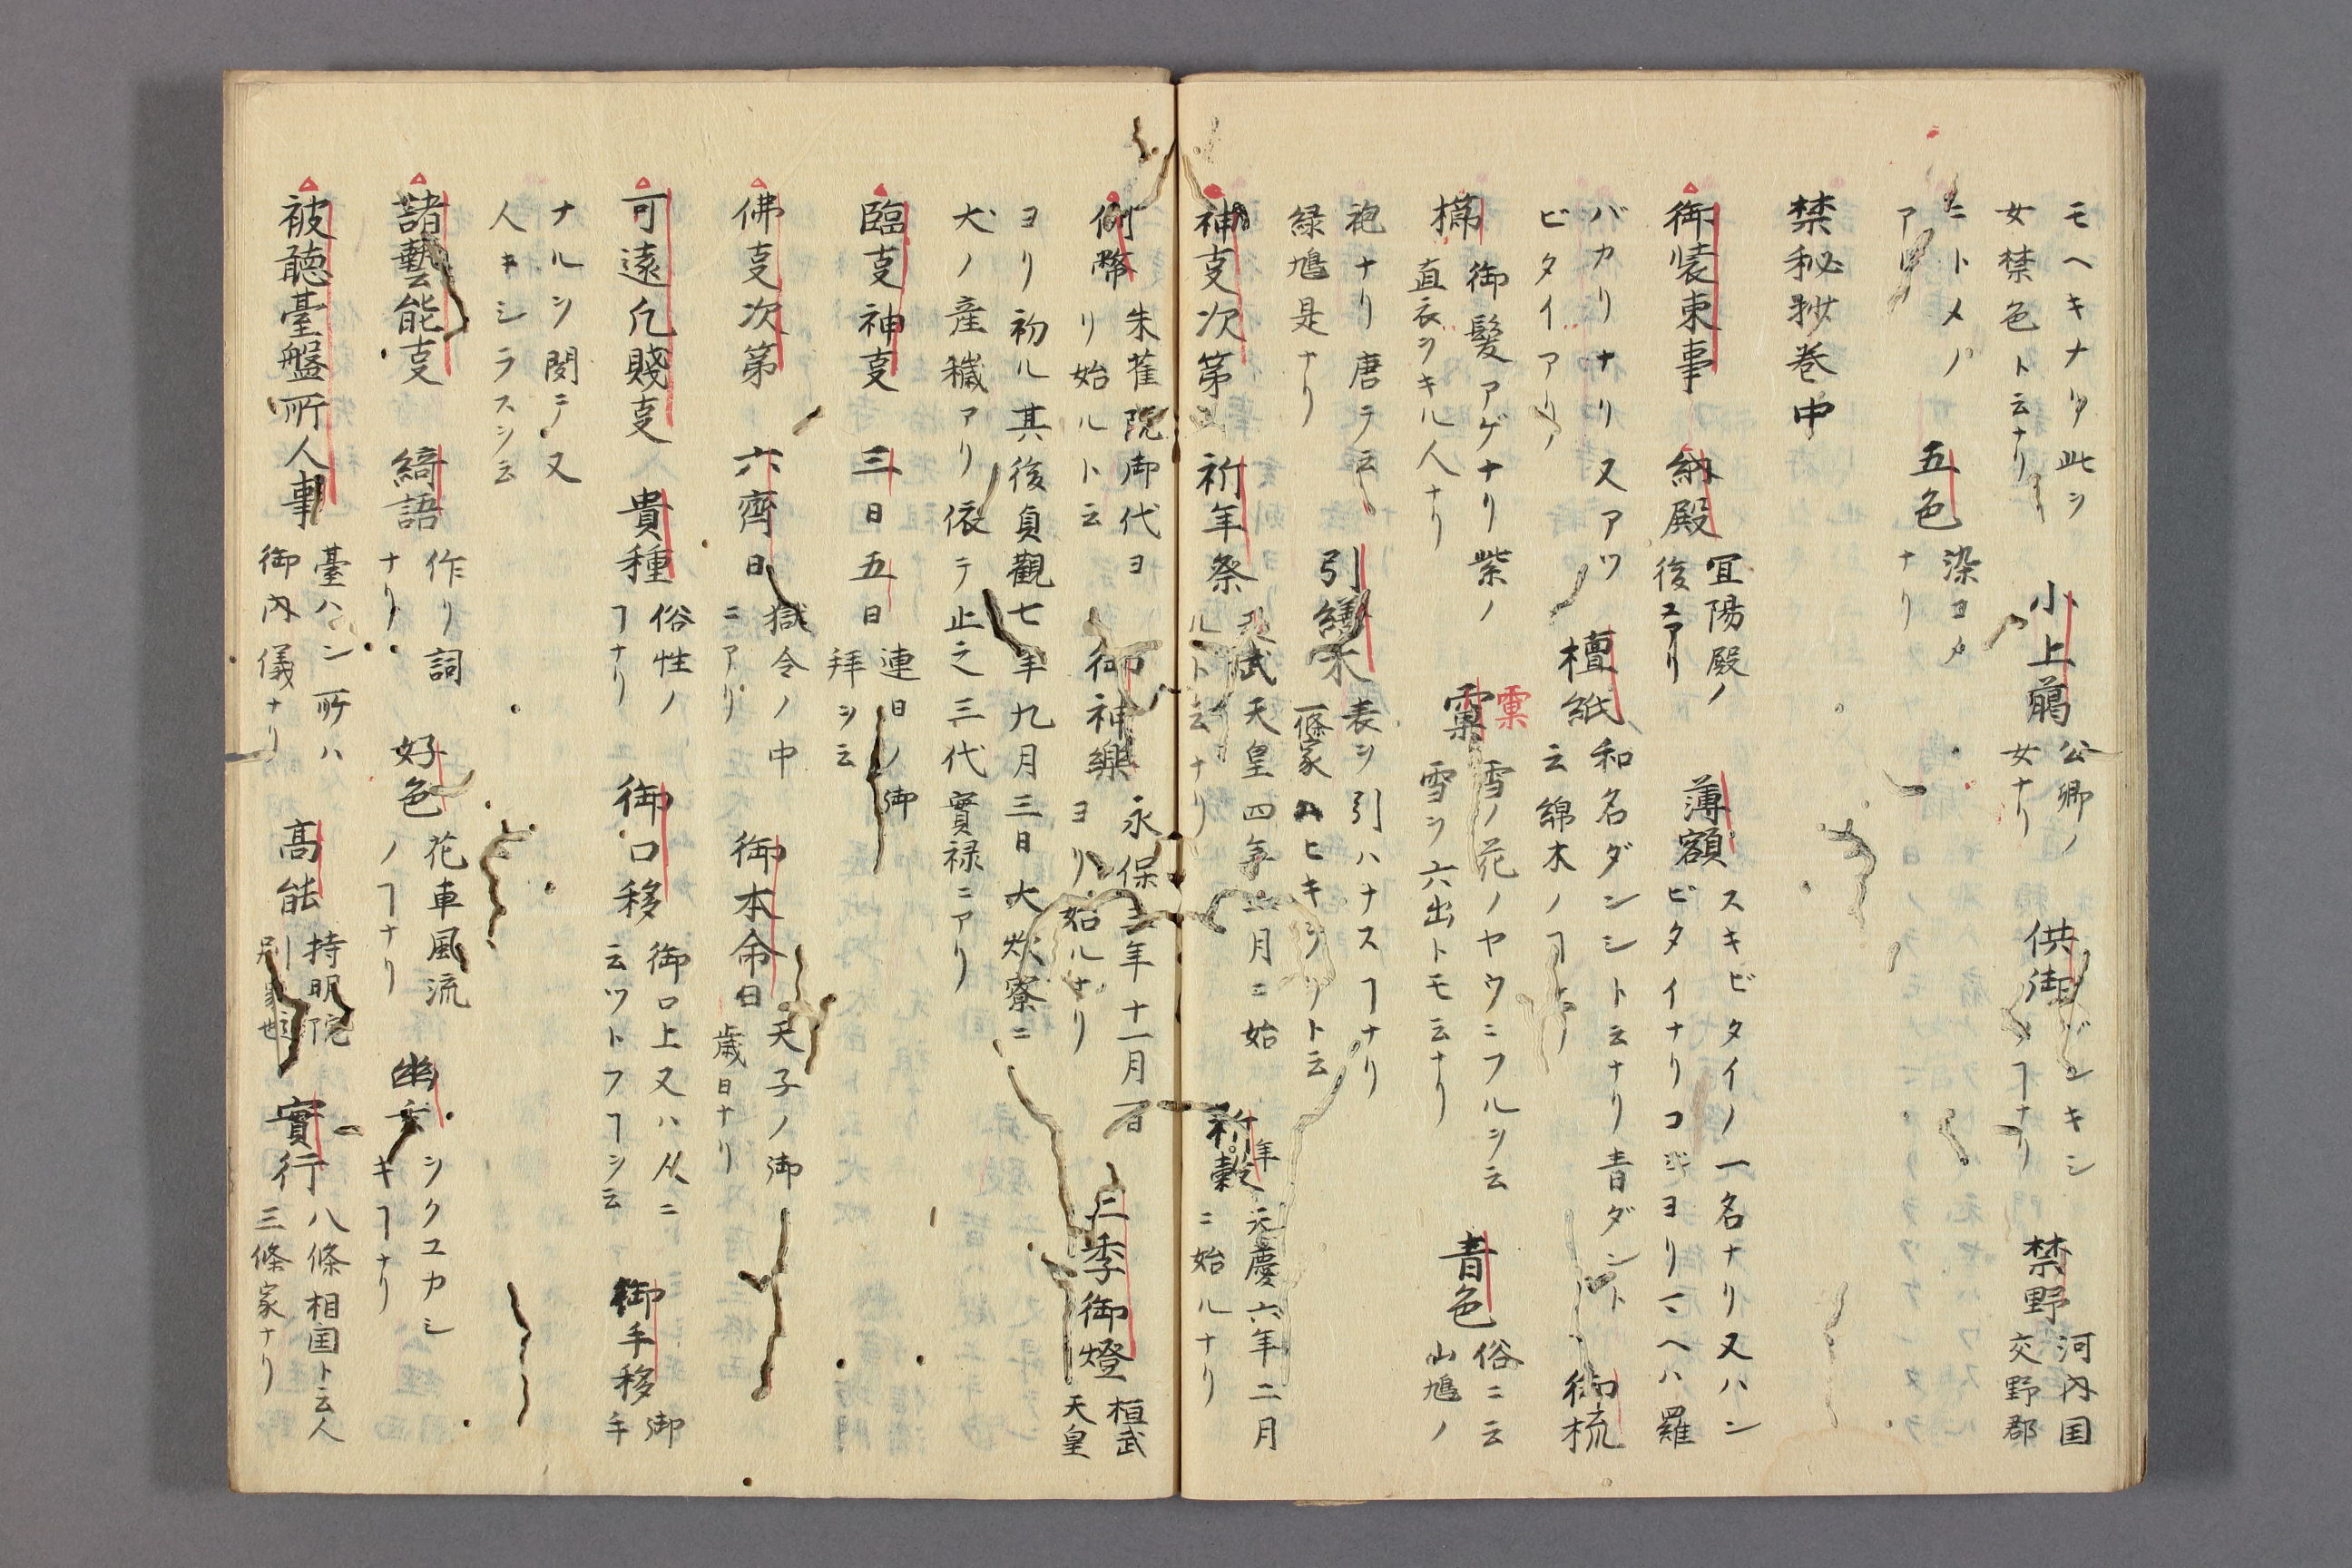 モヘキナリ此ヲ
女禁色ト云ナリ
小上﨟
公卿ノ
女ナリ
供御
ヲキシ
フナリ
禁野
河内国
交野郡
ニトメノ
アリ
五色
染ヨメ
ナリ
禁秘抄巻中
御装束事
納殿
冝陽殿ノ
後ニアリ
薄額
スキビタイノ一名ナリ又ハン
ビタイナリコジヨリマヘハ羅
バカリナリ又アツ
ビタイアリ
檀紙
和名ダンシト云ナリ青ダント
云綿木ノ
御梳
櫛
御髪アゲナリ紫ノ
直衣ヲキル人ナリ
霙
雪ノ花ノヤウニフルヲ云
雪ヲ六出トモ云ナリ
青色
俗ニ云
山鳩ノ
袍ナリ唐テ云
緑鳩是ナリ
引繕木
表ヲ引ハナスヿナリ
一條家ハヒキ
神㕝次第
祈年祭
天武天皇四年二月ニ始
ルト云ナリ
祈年穀
元慶六年二月
ニ始ルナリ
例幣
朱雀院御代ヨ
リ始ルト云
御神樂
永保三年十一月一日
ヨリ始ルナリ
三季御燈
桓武
天皇
ヨリ初ル其後貞觀七年九月三日大炊寮ニ
犬ノ産穢アリ依テ止之三代實禄ニアリ
臨㕝神㕝
三日五日
連日ノ御
拜ヲ云
佛㕝次第
六齊日
獄令ノ中
ニアリ
御本命日
天子ノ御
歳日ナリ
可遠凢賤㕝
貴種
俗性ノ
ヿナリ
御口移
御口上又ハ从ニ
云ツトフヿヲ云
御手移
御
手
ナルヲ関テ又
人キシラスヲ云
諸藝能㕝
綺語
作リ詞
ナリ
好色
花車風流
ノヿナリ
幽玄
ヲクユカシ
キヿナリ
被聴臺盤所人事
臺ハン所ハ
御内儀ナリ
髙能
持明院
別家也
實行
八條相国ト云人
三條家ナリ